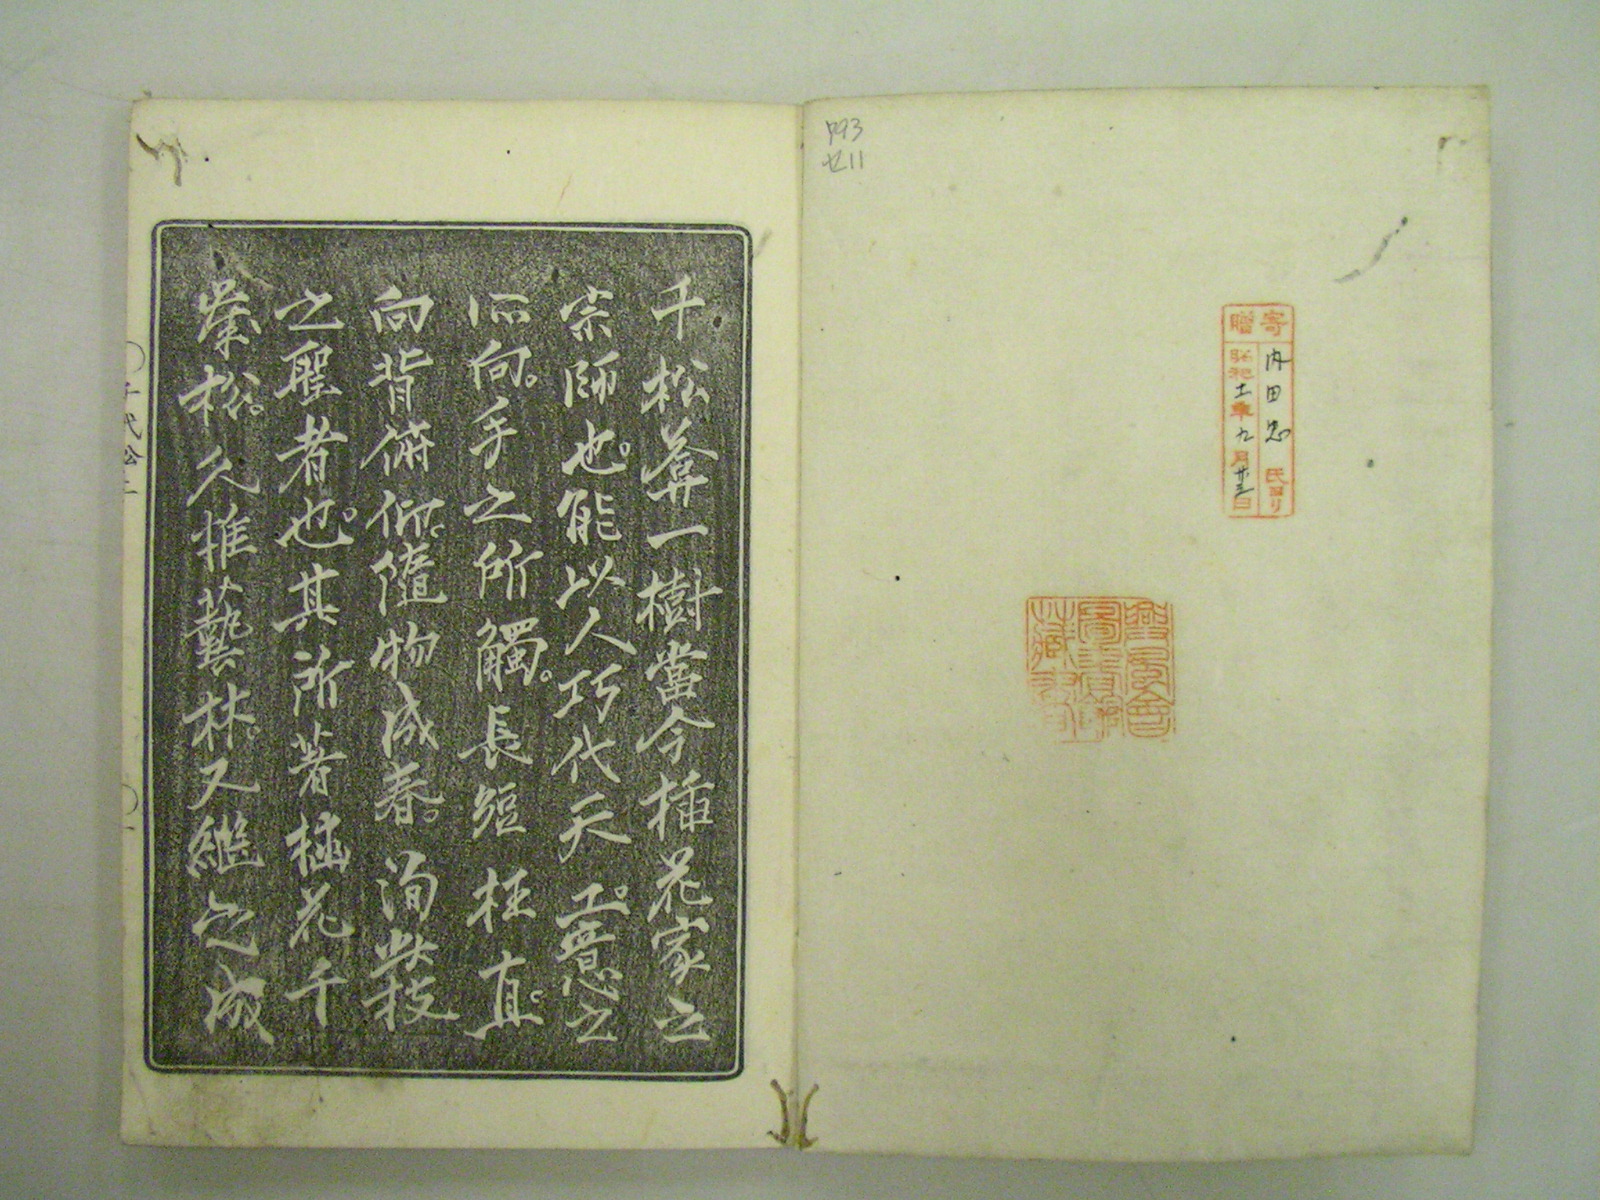 793
セ11
寄贈
内田 氏ヨリ
昭和十一年九月廿三日
千松葊一樹當今插花家之
宗師也。能以人巧代天工。意之
所向。手之所觸。長短枉真。
向背俯仰。隨物成春。洵此技
之聖者也。其所著插花千
松。久推藝林。又繼之
千代松